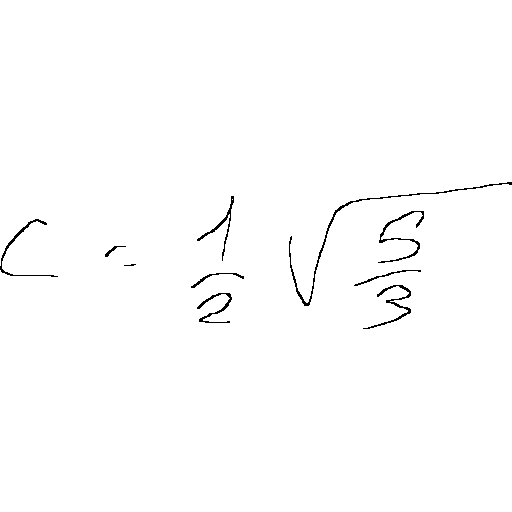 c = \frac{1}{2} \sqrt{\frac{5}{3}}